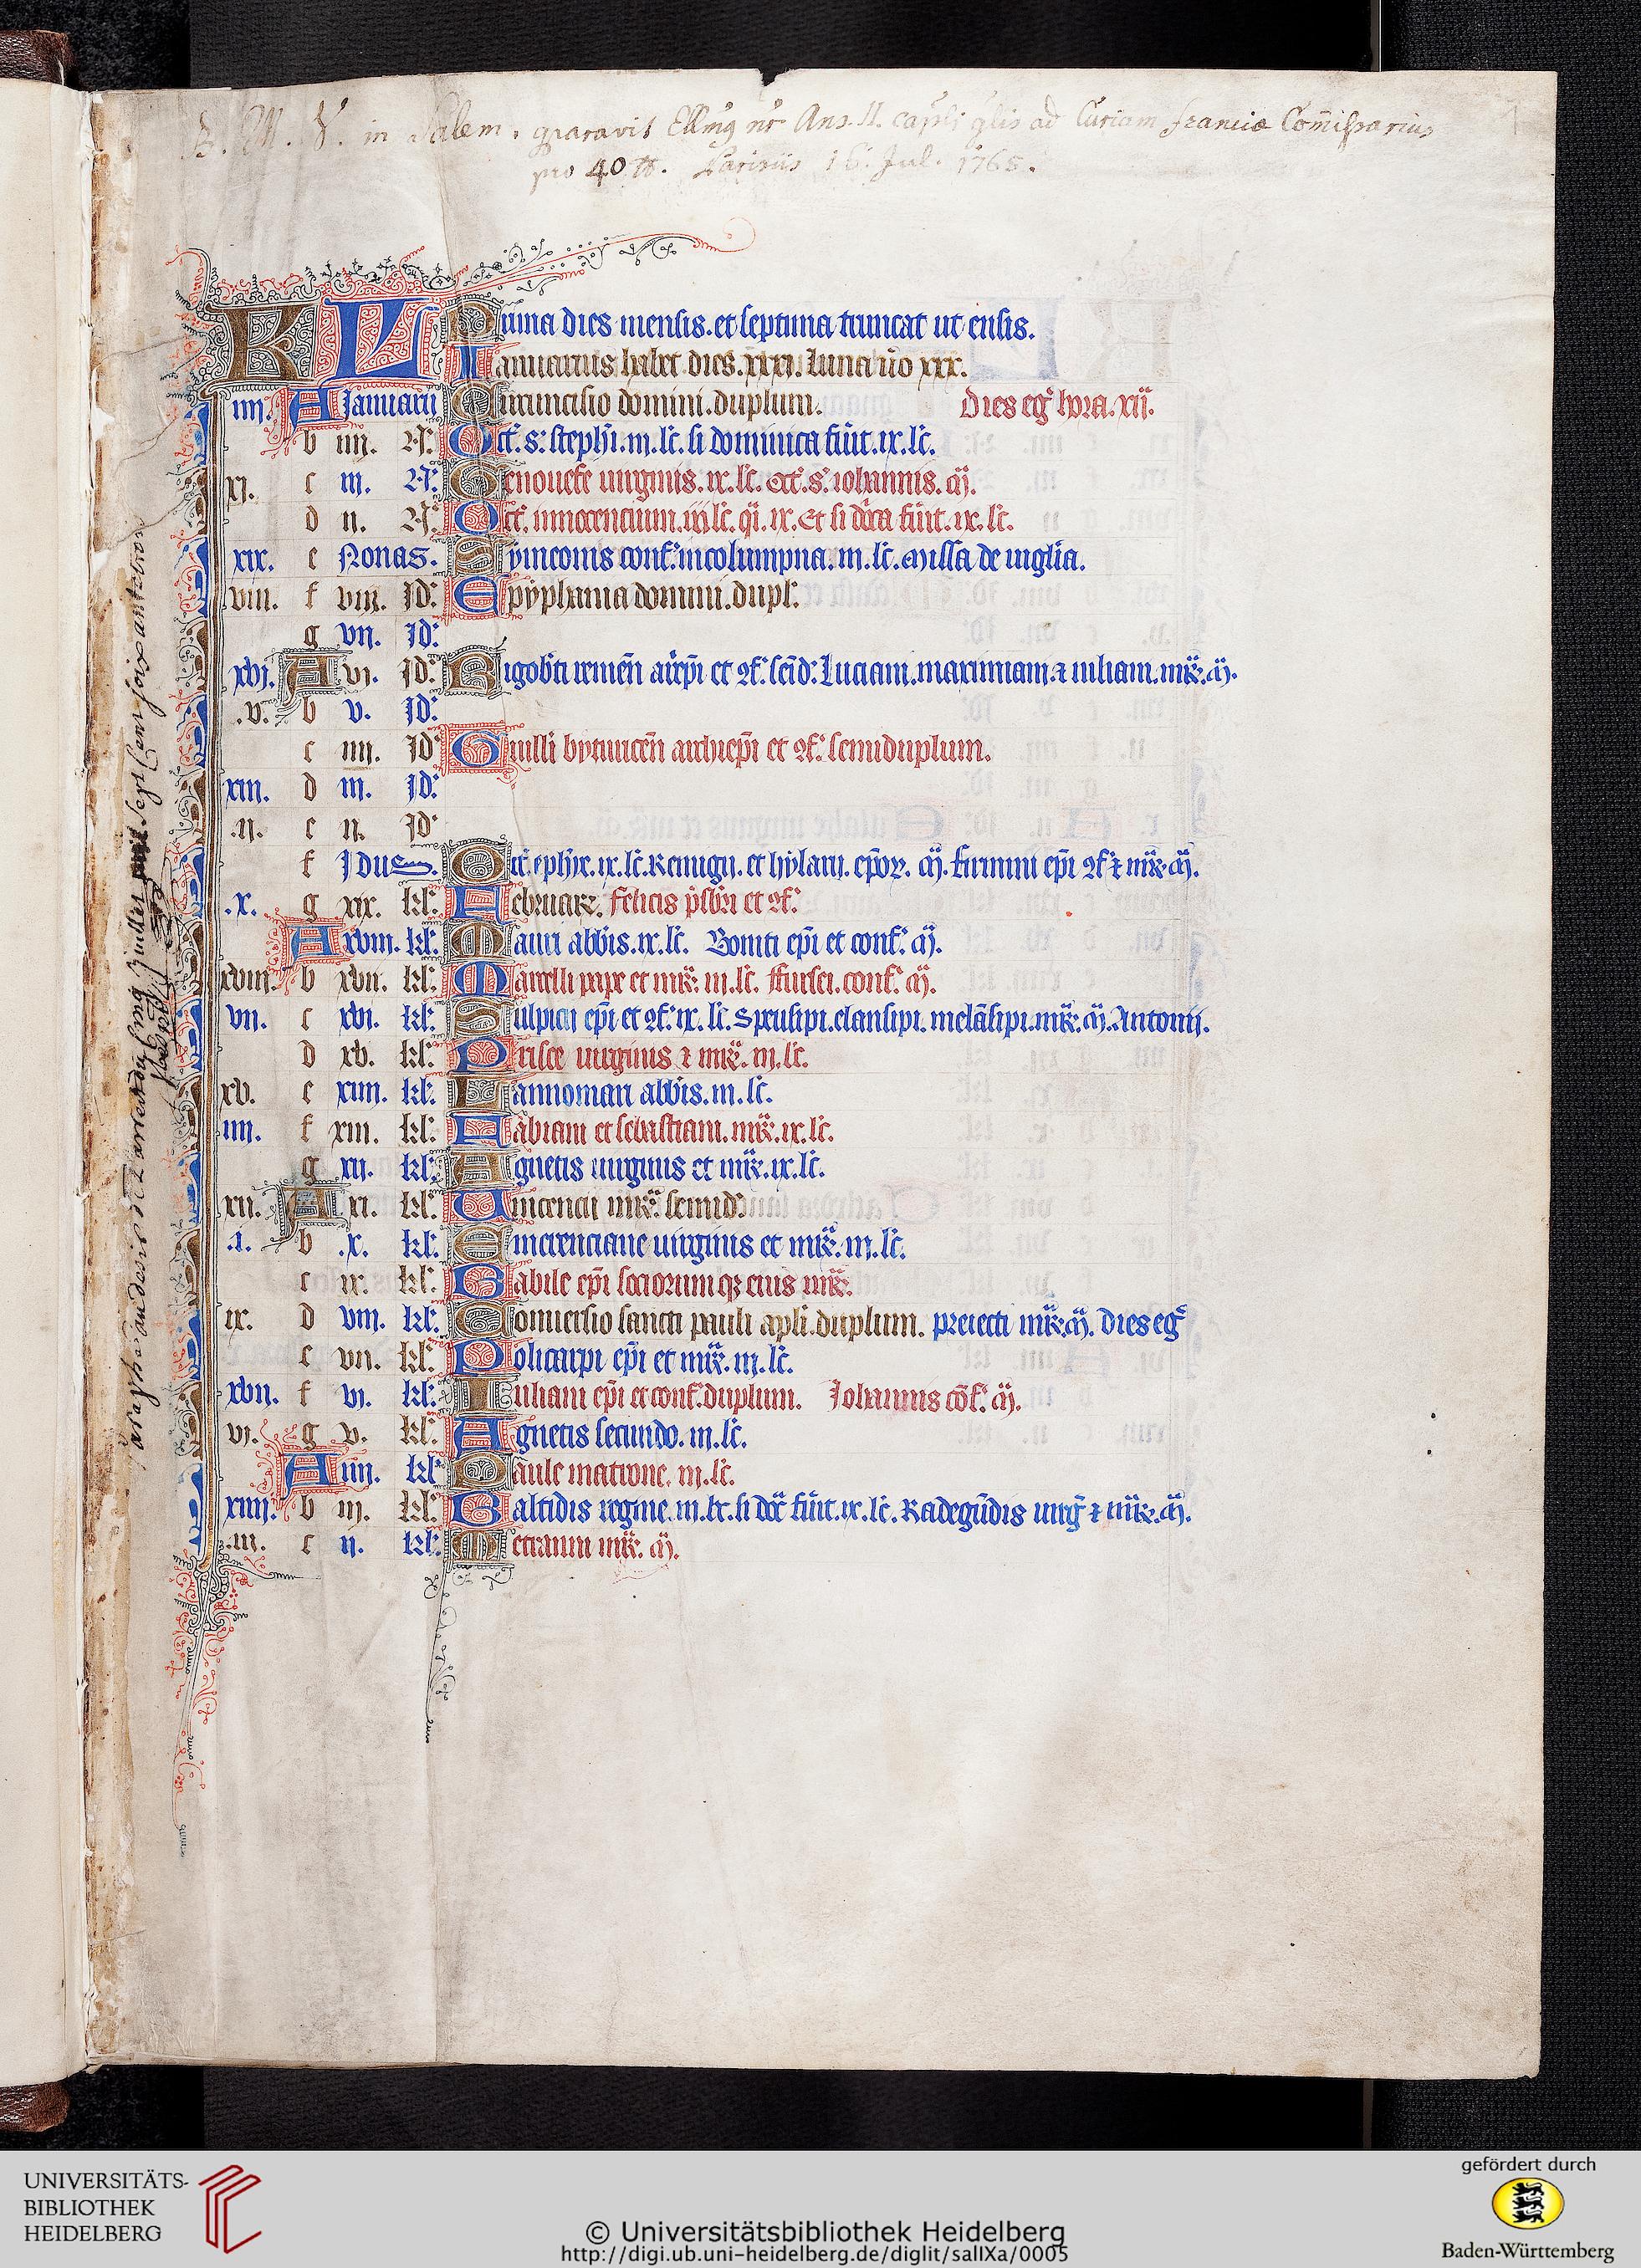 B. M. V. in Salem. comparavit Ellmg nr Ans. II. capli glis ad Curiam franciæ Commissarius
pro 40 tt. Parisiis 16. Jul. 1765.
KL Prima dies mensis. et septima truncat ut ensis.
Januarius habet dies. xxxi. luna u̅o xxx.
iiii. A Januarii Circuncisio domini. duplum. Dies eg̾ hora. xii.
b iiii. N̾. Oct̾. s̾. steph̅i. iii. lc̅. si dominica fu̅it. ix. lc̅.
xi. c iii. N̾. Genouefe uirginis. ix. lc̅. oct̾. s̾. iohannis. m̅.
d ii. N̾. Oct̾. innocencium. iii lc̅. q̅i. ix. Et si d̅ica fu̅it. ix. lc̅.
xix. e Nonas. Symeonis conf̾. in columpna. iii. lc̅. missa de uiglia̅.
viii. f viii. Id̾. Epyphania domini. dupl̾.
g vii. Id̾.
xvi. A vi. Id̾. Rigob̅ti remen̅ arep̅i et ꝯf̾. semid̾. Luciani. maximiani. ⁊ iuliani. mr̅. m̅.
.v. b v. Id̾.
c iiii. Id̾ Guill̅i byturicen̅ archiep̅i et ꝯf̾. semiduplum.
xiii. d iii. Id̾.
.ii. e ii. Id̾
f Idus. Oct̾. ephy̅e. ix. lc̅. Remigii. et hylarii. ep̅oꝝ. m̅. firmini ep̅i ꝯf̾ ⁊ mr̅. m̅.
.x. g xix. kl̾. Februarii. felicis p̅sb̅ri et ꝯf̾.
A xviii. kl̾. Mauri abb̅is. ix. lc̅. Boniti ep̅i et conf̾. m̅.
xviii. b xvii. kl̾. Marcelli pape et mr̅. iii. lc̅. ffursei. conf̾. m̅.
vii. c xvi. kl̾. Sulpicii ep̅i et ꝯf̾. ix. lc̅. Speusipi. elausipi. mela̅sipi. mr̅. m̅. Antonii.
d xv. kl̾. Prisce uirginis ⁊ mr̅. iii. lc̅.
xv. e xiiii. kl̾. Lannomari abb̅is. iii. lc̅.
iiii. f xiii. kl̾. Fabiani et sebastiani. mr̅. ix. lc̅.
g xii. kl̾. Agnetis uirginis et mr̅. ix. lc̅.
xii. A xi. kl̾. Uincencii mr̅. semid̾.
.i. b .x. kl̾. Emerenciane uirginis et mr̅. iii. lc̅.
c ix. kl̾. Babile ep̅i sociorumqꝫ eius mr̅.
ix. d viii. kl̾. Conuersio sancti pauli ap̅li. duplum. preiecti mr̅. m̅. Dies eg̾
e vii. kl̾. Policarpi ep̅i et mr̅. iii. lc̅.
xvii. f vi. kl̾. Iuliani ep̅i et conf̾. duplum. Iohannis co̅f̾. m̅.
vi. g v. kl̾. Agnetis secundo. iii. lc̅.
A iiii. kl̾ Paule matrone. iii. lc̅.
xiiii. b iii. kl̾. Baltidis regine. iii. lc̅. si do̅c fu̅it. ix. lc̅. Radegu̅dis uirg̅ ⁊ mr̅. m̅.
.iii. c ii. kl̾. Metranni mr̅. m̅.
UNIVERSITÄTS-
BIBLIOTHEK
HEIDELBERG
© Universitätsbibliothek Heidelberg
http://digi.ub.uni-heidelberg.de/diglit/salIXa/0005
gefördert durch
Baden-Württemberg